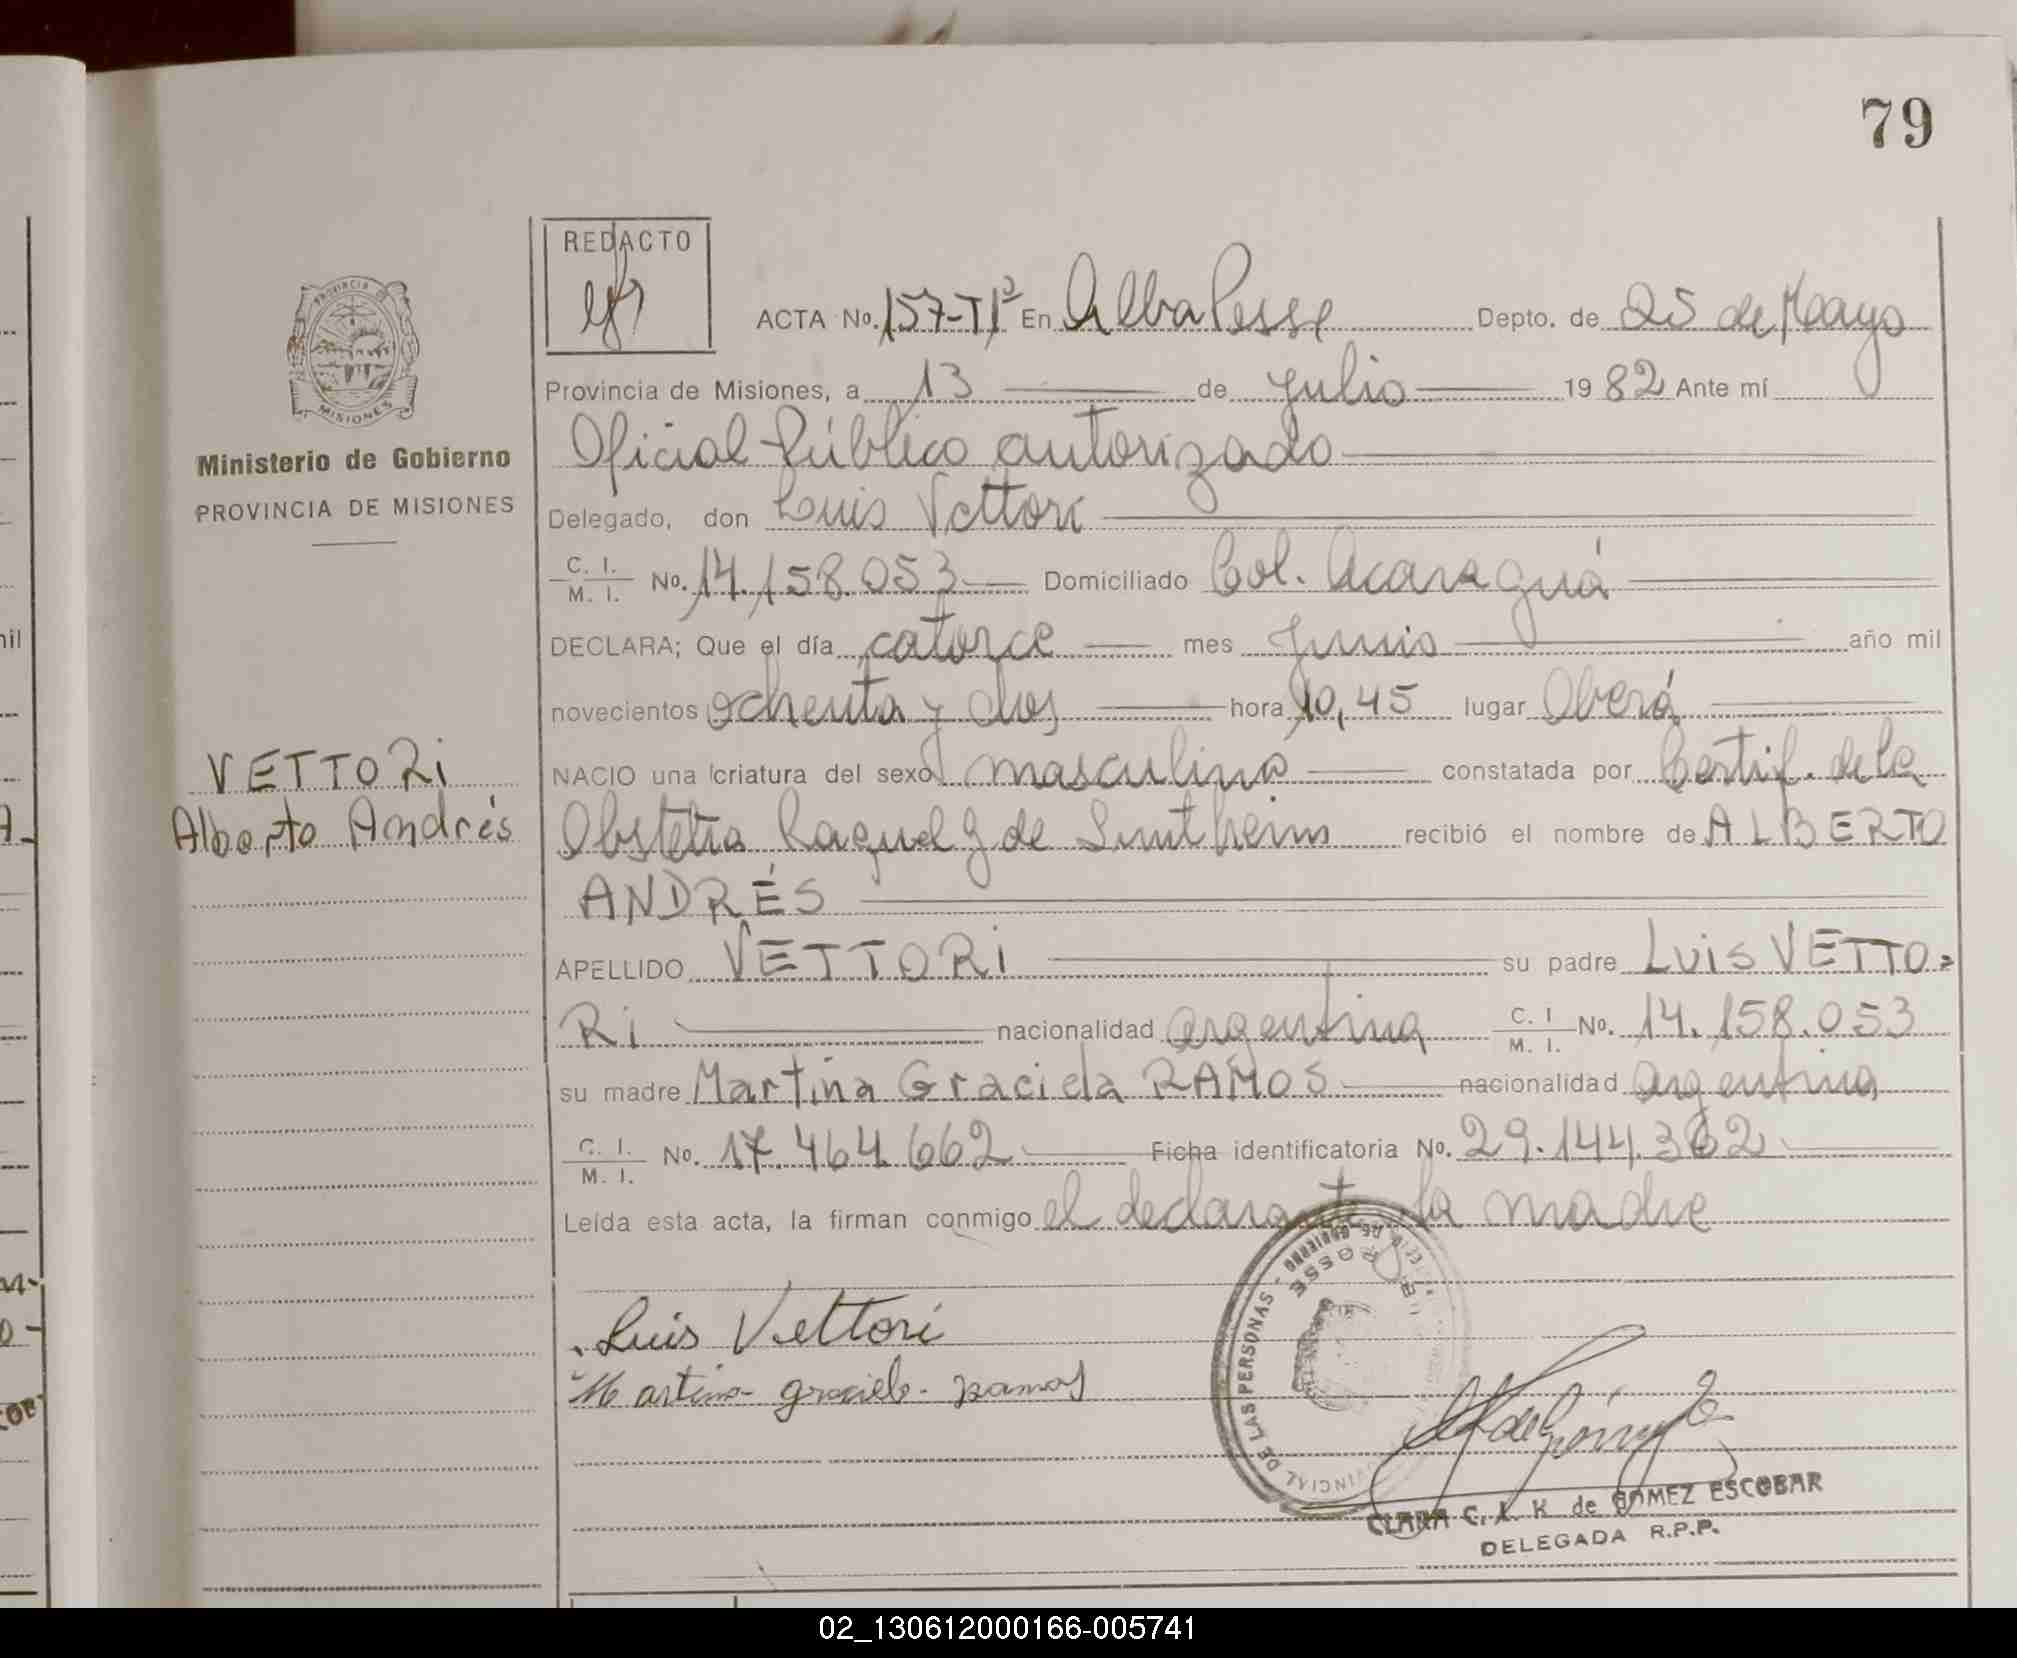 79
REDACTO
ACTA No. 157-T1º En Alba Posse Depto. de 25 de Mayo
Provincia de Misiones, a 13 de Julio 1982 Ante mí
Oficial Público autorizado
Delegado, don Luis Vettori
C. I. / M. I. No. 14.158.053 Domiciliado Col. Acaraguá
DECLARA; Que el día catorce mes Junio año mil
novecientos ochenta y dos hora 10,45 lugar Oberá
NACIO una criatura del sexo masculino constatada por Certif. de la
Obstetra Raquel G de recibió el nombre de ALBERTO
ANDRÉS
APELLIDO VETTORI su padre LUIS VETTO=
RI nacionalidad argentina C. I / M. I. No. 14.158.053
su madre Martina Graciela RAMOS nacionalidad argentina
C. I. / M. I. No. 17.464.662 Ficha identificatoria No. 29.144.362
Leída esta acta, la firman conmigo el declarante y la madre
Luis Vettori
Martina graciela ramos
PROVINCIA DE
MISIONES
Ministerio de Gobierno
PROVINCIA DE MISIONES
VETTORI
Alberto Andrés
PROVINCIAL DE LAS PERSONAS - DE GOBIERNO
POSSE
CLARA C. L. K. de GOMEZ ESCOBAR
DELEGADA R.P.P.
02_130612000166-005741